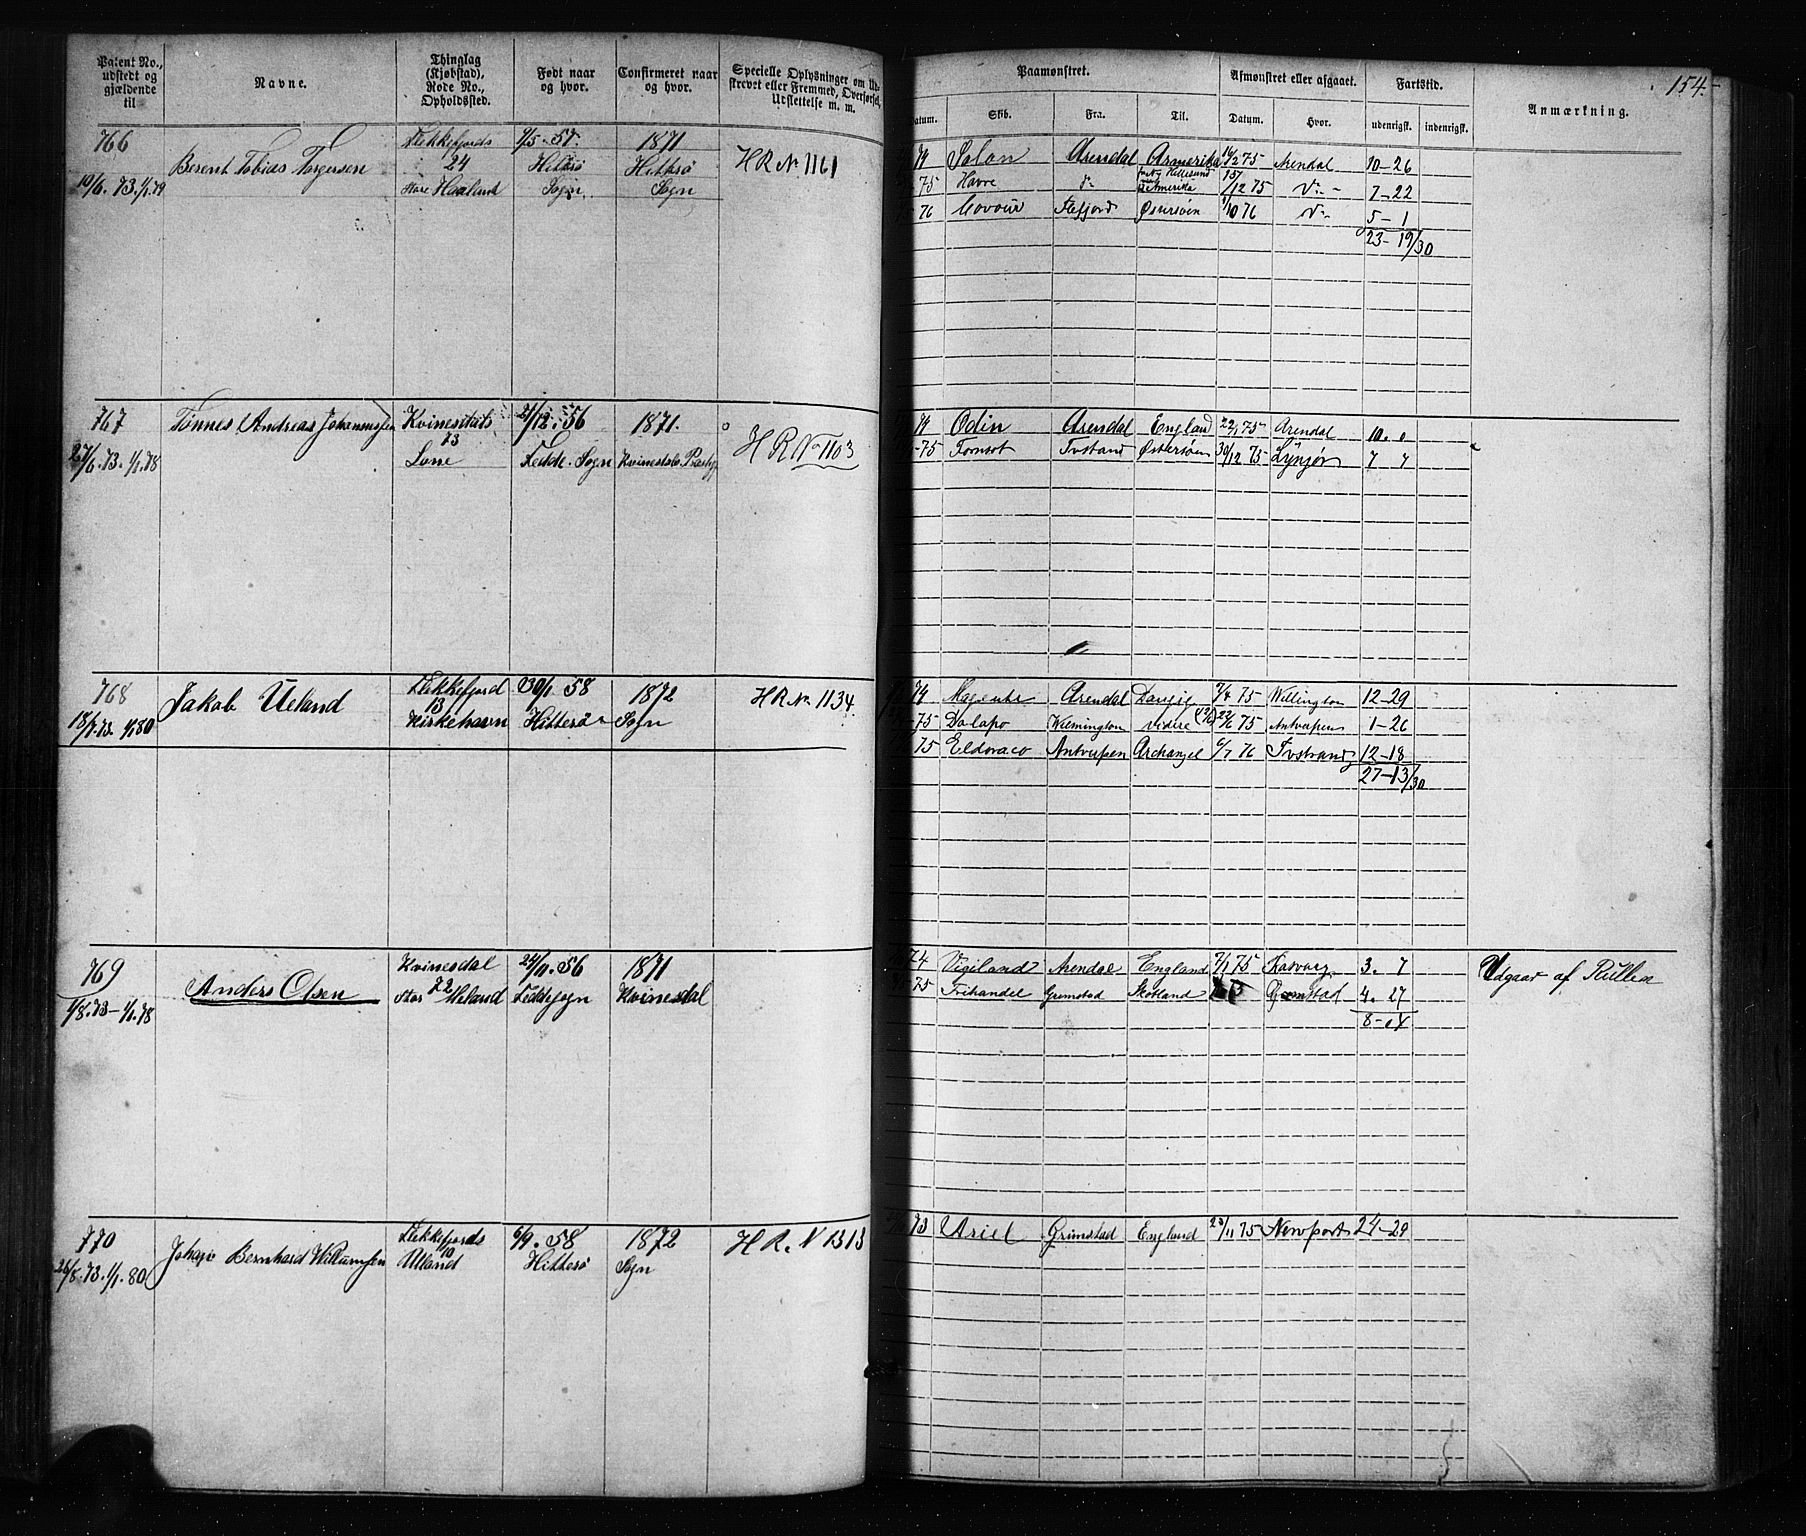 154.
Patent No., udstedt og gjældende til
Navne.
Thinglag (Kjøbstad), Rode No., Opholdssted.
Født naar og hvor.
Confirmeret naar og hvor.
Specielle Oplysninger om
strevet eller Fremmed, Overførsel,
Udslettelse m. m.
Paamønstret.
Afmønstret eller afgaaet.
Fartstid.
Anmærkning.
Datum.
Skib.
Fra.
Til.
Datum.
Hvor.
udenrigsk.
indenrigsk.
766 Flekkefjords 9/5. 57. 1871
Berent Tobias Torgersen 24 Hitterø Hitterø H R No 1161
10/6. 73. 1/1.79 Store Haaland Sogn Sogn
74 Solon Arendal Amerika 14/2 75 Arendal 10-26
75 Havre 12 75 7-22
76 Østersøen 1/10 76 5-1
23-19/30
767 Tønnes Andreas Johannessen Kvinesdals 21/12. 56 1871.
73 H R No 1103
27/6. 73. 1/1.78 Fedde Sogn Kvinesdals
74 Odin Arendal England 22/1 75 Arendal 10. 0
75 Tvstand Østersøen 30/12 75 Lyngør 7 7
768 Jakob Ueland Flekkefjord 30/1 58 1872 H R No 1134
13
18/7.73. 1/1.80 Kirkehavn Hitterø Sogn
74 Arendal Danzig 7/4 75 Willington 12-29
75 Dalapo Wilmington videre 22/6 75 Antverpen 1-26
75 Eldoraco Antverpen Archangel 6/7 76 Tvstrand 12-18
27-13/30
769 Kvinesdal 24/11. 56 1871
Anders Olsen 72
1/8. 73-1/1. 78 Stor Meland Feddesogn Kvinesdal
74 Vigiland Arendal England 7/1 75 3. 7 Udgaar af Rullen
75 Frihandel Grimstad Skotland Grimstad 4. 27
8-04
770 Flekkefjords 6/9. 58 1872 H R. N 1313
Johan Bernhard Williamsen 10
26/8. 73. 1/1. 80 Uland Hitterø Sogn
73 Ariel Grimstad England 23/11 75 Newport 24-29